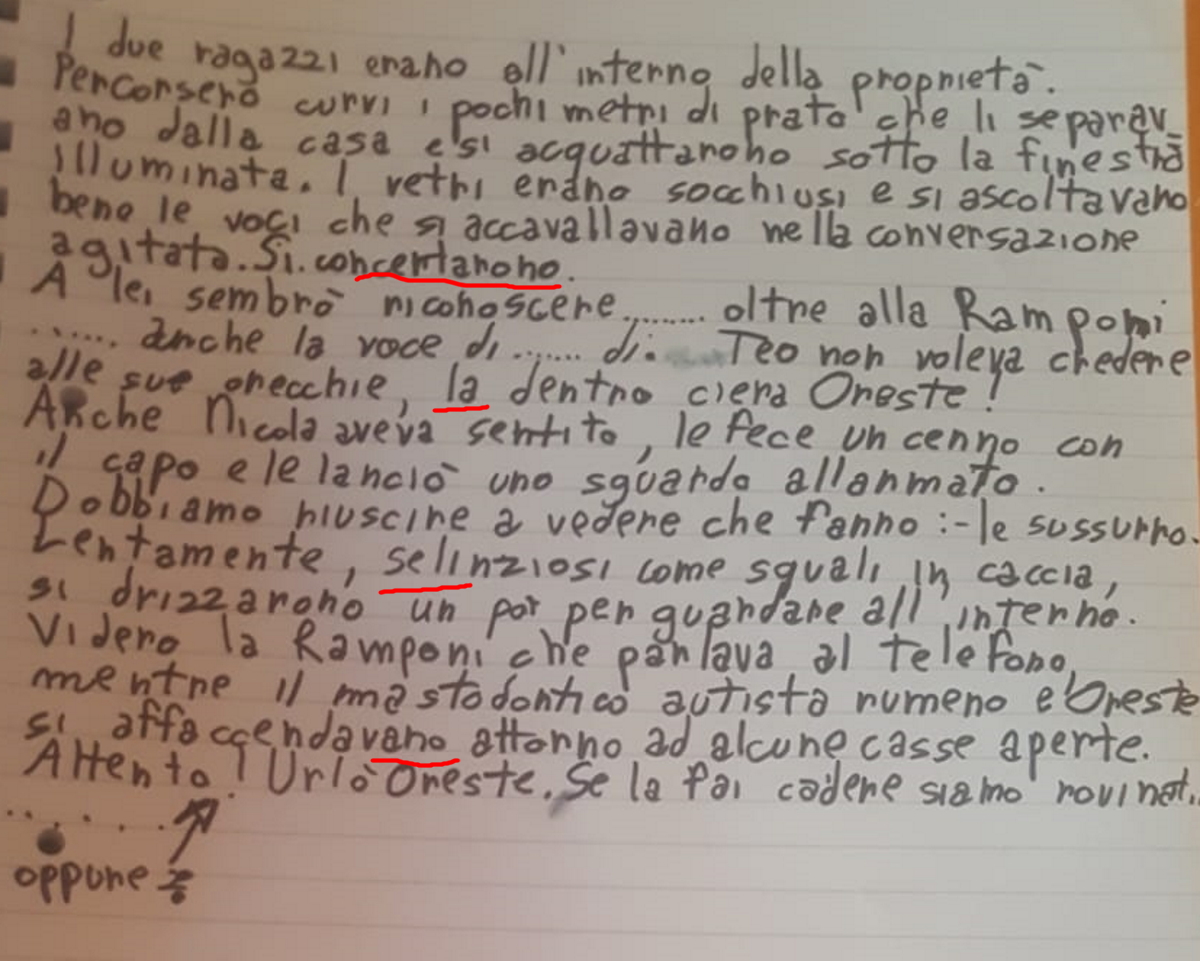 I due ragazzi erano all'interno della proprietà.
Percorsero curvi i pochi metri di prato che li separav_
ano dalla casa e si acquattarono sotto la finestra
illuminata. I vetri erano socchiusi e si ascoltavano
bene le voci che si accavallavano nella conversazione
agitata. Si concertarono.
A lei sembrò riconoscere ........ oltre alla Ramponi
...... anche la voce di ....... di. Teo non voleva credere
alle sue orecchie, la dentro ciera Oreste!
Anche Nicola aveva sentito, le fece un cenno con
il capo e le lanciò uno sguardo allarmato.
Dobbiamo riuscire a vedere che fanno:- le sussurro.
Lentamente, selinziosi come squali in caccia,
si drizzarono un po' per guardare all'interno.
Videro la Ramponi che parlava al telefono,
mentre il mastodontico autista rumeno e Oreste
si affaccendavano attorno ad alcune casse aperte.
Attento! Urlò Oreste. Se la fai cadere siamo rovinat..
.......
oppure